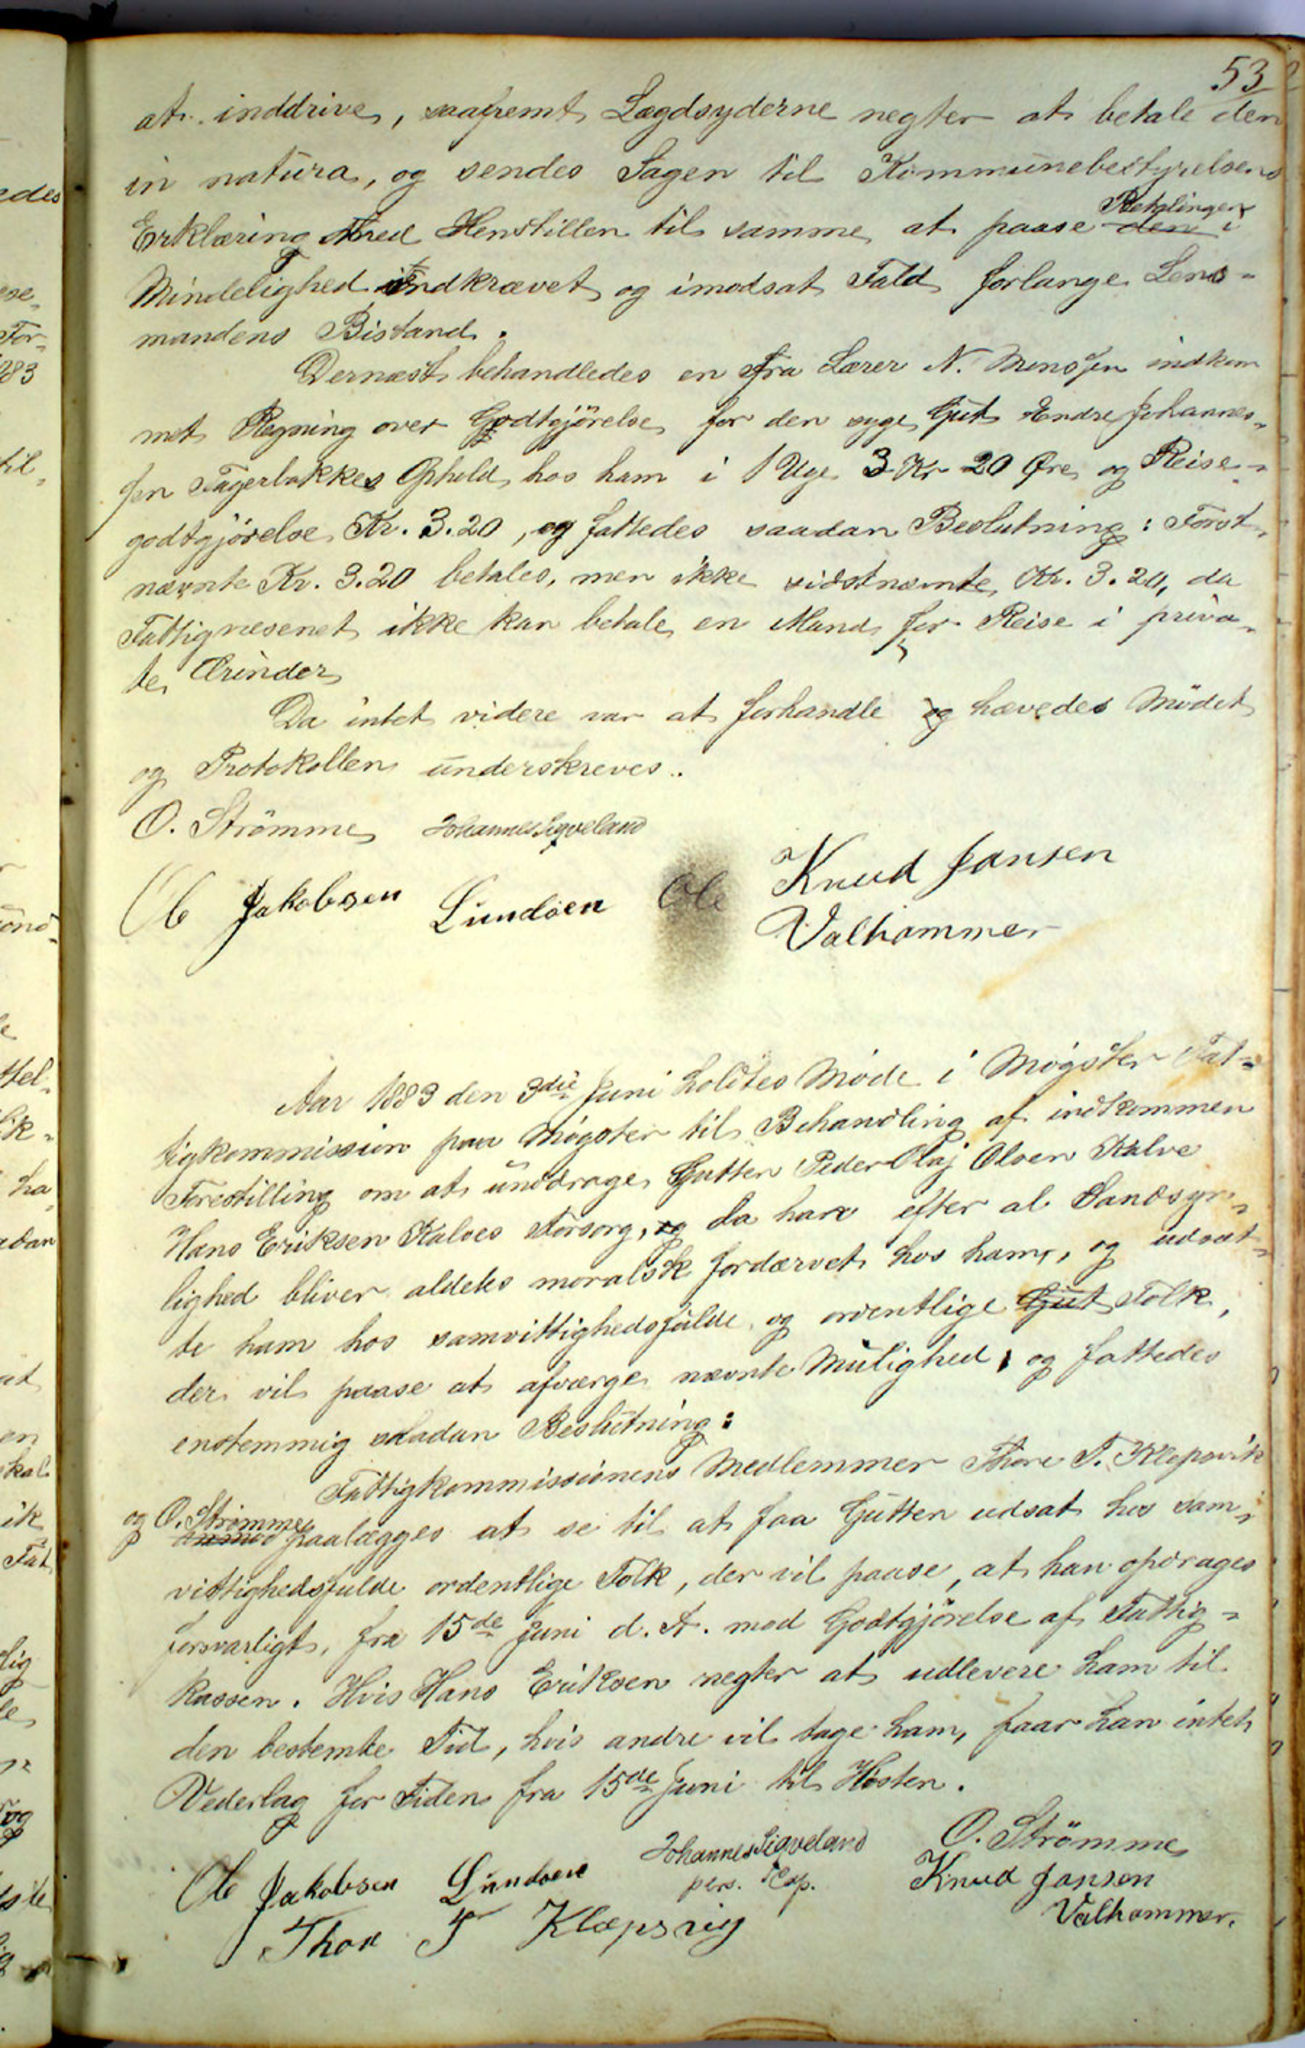 53
at inddrive, saafremt Lægdsyderne negter at betale den
in natura, og sendes Sagen til Kommunebestyrelsens
Erklæring med Henstillen til samme at paase Betalingen den i
Mindelighed indkrævet og imodsat Fald forlange Lens-
mandens Bistand.
Dernæst behandledes en fra Lærer N. Monssen indkom
met Regning over Godtgjörelse for den syge Gut Endre Johannes-
sen Fagerbakkes Ophold hos ham i 1 Uge 3 Kr 20 Øre og Reise-
godtgjörelse Kr. 3.20, og fattedes saadan Beslutning: Först-
nævnte Kr. 3.20 betales, men ikke sidstnævnte Kr. 3.20, da
Fattigvesenet ikke kan betale en Mand for Reise i priva-
te Ærinder
Da intet videre var at forhandle og hævedes Mödet
og Protokollen underskreves.
O. Strömme Johannes Sigveland
Ole Jakobsen Lundöen Ole Knud Jansen
Valhammer
Aar 1883 den 3die Juni holdtes Møde i Møgster Fat-
tigkommission paa Møgster til Behandling af indkommen
Forestilling om at unddrage Gutten Peder Olaj Olsen Kalve
Hans Eriksen Kalves Forsorg, og da han efter al Sandsyn-
lighed bliver aldeles moralsk fordærvet hos ham, og udsæt-
te ham hos samvittighedsfulde og ordentlige Gut Folk,
der vil paase at afværge nævnte Mulighed, og fattedes
enstemmig saadan Beslutning:
Fattigkommissionens Medlemmer Thore T. Klepsvik
og O. Strømme
anmod paalægges at se til at faa Gutten udsat hos sam-
vittighedsfulde ordentlige Folk, der vil paase, at han opdrages
forsvarligt, fra 15de Juni d. A. mod Godtgjörelse af Fattig-
kassen. Hvis Hans Eriksen negter at udlevere ham til
den bestemte Tid, hvis andre vil tage ham, faar han intet
Vederlag for Tiden fra 15de Juni til Høsten.
Ole Jakobsen Lundöen Johannes Sigveland O. Strömme
pers. Exp. Knud Jansen
Thor T Klæpsvig Valhammer.